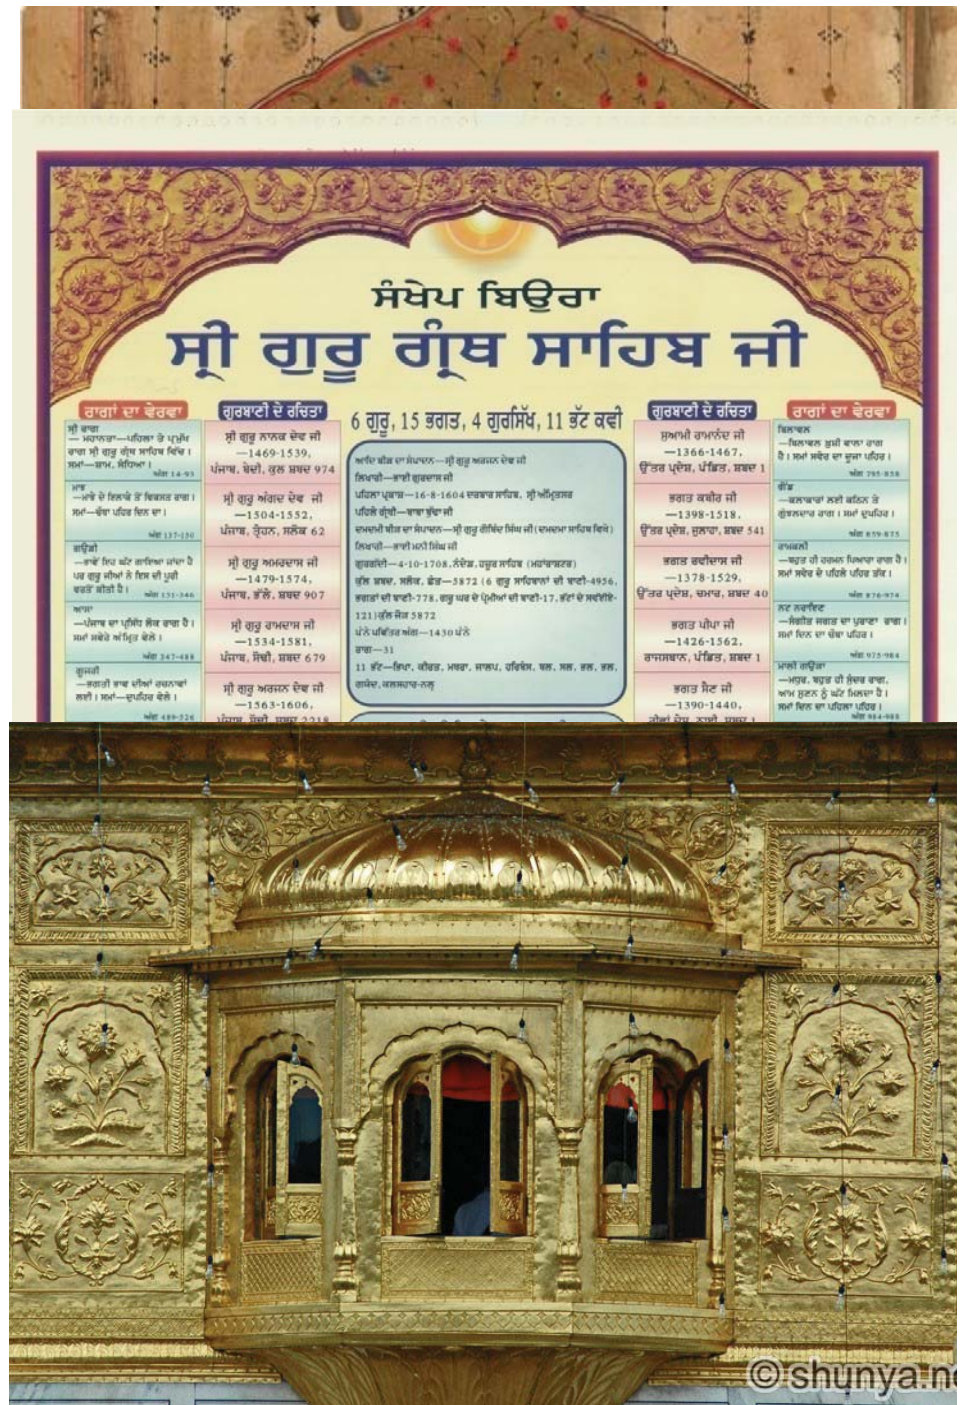 ਸੰਖੇਪ ਬਿਉਰਾ
ਸ੍ਰੀ ਗੁਰੂ ਗ੍ਰੰਥ ਸਾਹਿਬ ਜੀ
ਰਾਗਾਂ ਦਾ ਵੇਰਵਾ
ਸ੍ਰੀ ਰਾਗ
— ਮਹਾਨਤਾ—ਪਹਿਲਾ ਤੇ ਪ੍ਰਮੁੱਖ
ਰਾਗ ਸ੍ਰੀ ਗੁਰੂ ਗ੍ਰੰਥ ਸਾਹਿਬ ਵਿੱਚ।
ਸਮਾਂ—ਸ਼ਾਮ, ਸੰਧਿਆ।
ਅੰਗ 14-93
ਮਾਝ
—ਮਾਝੇ ਦੇ ਇਲਾਕੇ ਤੋਂ ਵਿਕਸਤ ਰਾਗ।
ਸਮਾਂ—ਚੌਥਾ ਪਹਿਰ ਦਿਨ ਦਾ।
ਅੰਗ 137-150
ਗਉੜੀ
—ਭਾਵੇਂ ਇਹ ਘੱਟ ਗਾਇਆ ਜਾਂਦਾ ਹੈ
ਪਰ ਗੁਰੂ ਜੀਆਂ ਨੇ ਇਸ ਦੀ ਪੂਰੀ
ਵਰਤੋਂ ਕੀਤੀ ਹੈ।
ਅੰਗ 151-346
ਆਸਾ
—ਪੰਜਾਬ ਦਾ ਪ੍ਰਸਿੱਧ ਲੋਕ ਰਾਗ ਹੈ।
ਸਮਾਂ ਸਵੇਰੇ ਅੰਮ੍ਰਿਤ ਵੇਲੇ।
ਅੰਗ 347-488
ਗੂਜਰੀ
—ਭਗਤੀ ਭਾਵ ਦੀਆਂ ਰਚਨਾਵਾਂ
ਲਈ। ਸਮਾਂ—ਦੁਪਹਿਰ ਵੇਲੇ।
ਅੰਗ 489-526
ਗੁਰਬਾਣੀ ਦੇ ਰਚਿਤਾ
ਸ੍ਰੀ ਗੁਰੂ ਨਾਨਕ ਦੇਵ ਜੀ
—1469-1539,
ਪੰਜਾਬ, ਬੇਦੀ, ਕੁਲ ਸ਼ਬਦ 974
ਸ੍ਰੀ ਗੁਰੂ ਅੰਗਦ ਦੇਵ ਜੀ
—1504-1552,
ਪੰਜਾਬ, ਤ੍ਰੇਹਨ, ਸਲੋਕ 62
ਸ੍ਰੀ ਗੁਰੂ ਅਮਰਦਾਸ ਜੀ
—1479-1574,
ਪੰਜਾਬ, ਭੱਲੇ, ਸ਼ਬਦ 907
ਸ੍ਰੀ ਗੁਰੂ ਰਾਮਦਾਸ ਜੀ
—1534-1581,
ਪੰਜਾਬ, ਸੋਢੀ, ਸ਼ਬਦ 679
ਸ੍ਰੀ ਗੁਰੂ ਅਰਜਨ ਦੇਵ ਜੀ
—1563-1606,
ਪੰਜਾਬ, ਸੋਢੀ, ਸ਼ਬਦ 2218
6 ਗੁਰੂ, 15 ਭਗਤ, 4 ਗੁਰਸਿੱਖ, 11 ਭੱਟ ਕਵੀ
ਆਦਿ ਬੀੜ ਦਾ ਸੰਪਾਦਨ—ਸ੍ਰੀ ਗੁਰੂ ਅਰਜਨ ਦੇਵ ਜੀ
ਲਿਖਾਰੀ—ਭਾਈ ਗੁਰਦਾਸ ਜੀ
ਪਹਿਲਾ ਪ੍ਰਕਾਸ਼—16-8-1604 ਦਰਬਾਰ ਸਾਹਿਬ, ਸ੍ਰੀ ਅੰਮ੍ਰਿਤਸਰ
ਪਹਿਲੇ ਗ੍ਰੰਥੀ—ਬਾਬਾ ਬੁੱਢਾ ਜੀ
ਦਮਦਮੀ ਬੀੜ ਦਾ ਸੰਪਾਦਨ—ਸ੍ਰੀ ਗੁਰੂ ਗੋਬਿੰਦ ਸਿੰਘ ਜੀ (ਦਮਦਮਾ ਸਾਹਿਬ ਵਿਖੇ)
ਲਿਖਾਰੀ—ਭਾਈ ਮਨੀ ਸਿੰਘ ਜੀ
ਗੁਰਗੱਦੀ—4-10-1708, ਨੰਦੇੜ, ਹਜ਼ੂਰ ਸਾਹਿਬ (ਮਹਾਂਰਾਸ਼ਟਰ)
ਕੁੱਲ ਸ਼ਬਦ, ਸਲੋਕ, ਛੰਤ—5872 (6 ਗੁਰੂ ਸਾਹਿਬਾਨਾਂ ਦੀ ਬਾਣੀ-4956,
ਭਗਤਾਂ ਦੀ ਬਾਣੀ-778, ਗੁਰੂ ਘਰ ਦੇ ਪ੍ਰੇਮੀਆਂ ਦੀ ਬਾਣੀ-17, ਭੱਟਾਂ ਦੇ ਸਵੱਈਏ-
121) ਕੁੱਲ ਜੋੜ 5872
ਪੰਨੇ ਪਵਿੱਤਰ ਅੰਗ—1430 ਪੰਨੇ
ਰਾਗ—31
11 ਭੱਟ—ਭਿਖਾ, ਕੀਰਤ, ਮਥਰਾ, ਜਾਲਪ, ਹਰਿਬੰਸ, ਬਲ, ਸਲ, ਭਲ, ਨਲ,
ਗਯੰਦ, ਕਲਸਹਾਰ-ਨਲ੍ਹ
ਗੁਰਬਾਣੀ ਦੇ ਰਚਿਤਾ
ਸੁਆਮੀ ਰਾਮਾਨੰਦ ਜੀ
—1366-1467,
ਉੱਤਰ ਪ੍ਰਦੇਸ਼, ਪੰਡਿਤ, ਸ਼ਬਦ 1
ਭਗਤ ਕਬੀਰ ਜੀ
—1398-1518,
ਉੱਤਰ ਪ੍ਰਦੇਸ਼, ਜੁਲਾਹਾ, ਸ਼ਬਦ 541
ਭਗਤ ਰਵੀਦਾਸ ਜੀ
—1378-1529,
ਉੱਤਰ ਪ੍ਰਦੇਸ਼, ਚਮਾਰ, ਸ਼ਬਦ 40
ਭਗਤ ਪੀਪਾ ਜੀ
—1426-1562,
ਰਾਜਸਥਾਨ, ਪੰਡਿਤ, ਸ਼ਬਦ 1
ਭਗਤ ਸੈਣ ਜੀ
—1390-1440,
ਰਾਗਾਂ ਦਾ ਵੇਰਵਾ
ਬਿਲਾਵਲ
—ਬਿਲਾਵਲ ਖ਼ੁਸ਼ੀ ਵਾਲਾ ਰਾਗ
ਹੈ। ਸਮਾਂ ਸਵੇਰ ਦਾ ਦੂਜਾ ਪਹਿਰ।
ਅੰਗ 795-858
ਗੋਂਡ
—ਕਲਾਕਾਰਾਂ ਲਈ ਕਠਿਨ ਤੇ
ਗੁੰਝਲਦਾਰ ਰਾਗ। ਸਮਾਂ ਦੁਪਹਿਰ।
ਅੰਗ 859-875
ਰਾਮਕਲੀ
—ਬਹੁਤ ਹੀ ਹਰਮਨ ਪਿਆਰਾ ਰਾਗ ਹੈ।
ਸਮਾਂ ਸਵੇਰ ਦੇ ਪਹਿਲੇ ਪਹਿਰ ਤੱਕ।
ਅੰਗ 876-974
ਨਟ ਨਰਾਇਣ
—ਸੰਗੀਤ ਜਗਤ ਦਾ ਪੁਰਾਣਾ ਰਾਗ।
ਸਮਾਂ ਦਿਨ ਦਾ ਚੌਥਾ ਪਹਿਰ।
ਅੰਗ 975-984
ਮਾਲੀ ਗਉੜਾ
—ਮਧੁਰ, ਬਹੁਤ ਹੀ ਸੁੰਦਰ ਰਾਗ,
ਆਮ ਸੁਣਨ ਨੂੰ ਘੱਟ ਮਿਲਦਾ ਹੈ।
ਸਮਾਂ ਦਿਨ ਦਾ ਪਹਿਲਾ ਪਹਿਰ।
ਅੰਗ 984-988
© shunya.ne